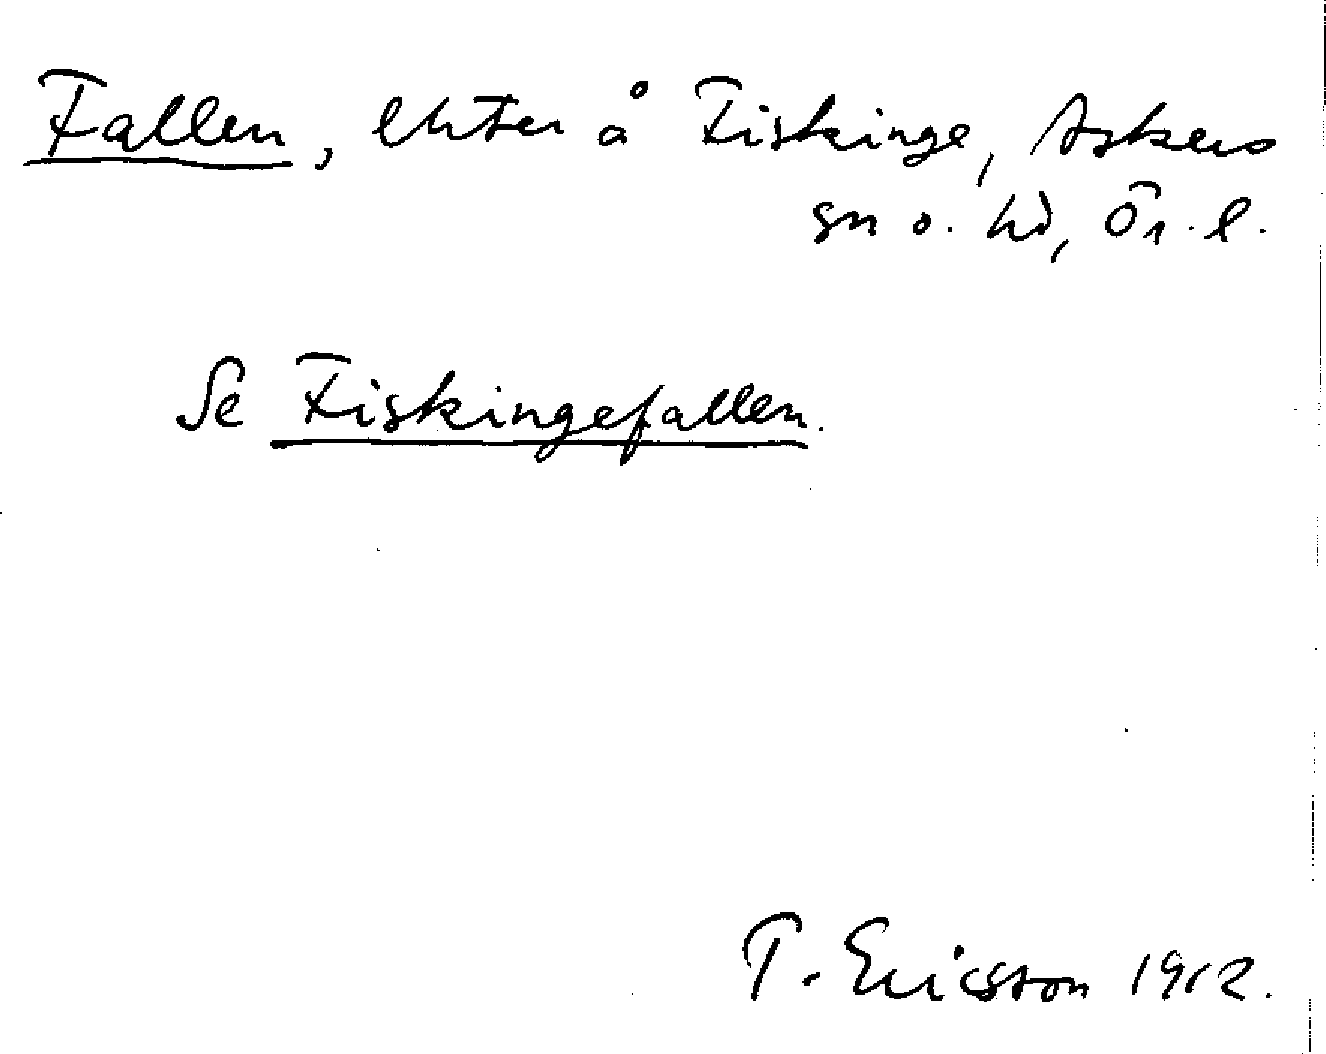 Fallen, lhter å Fiskinge, Askers
sn o. hd, Ör. l.
Se Fiskingefallen.
T. Ericsson 1912.